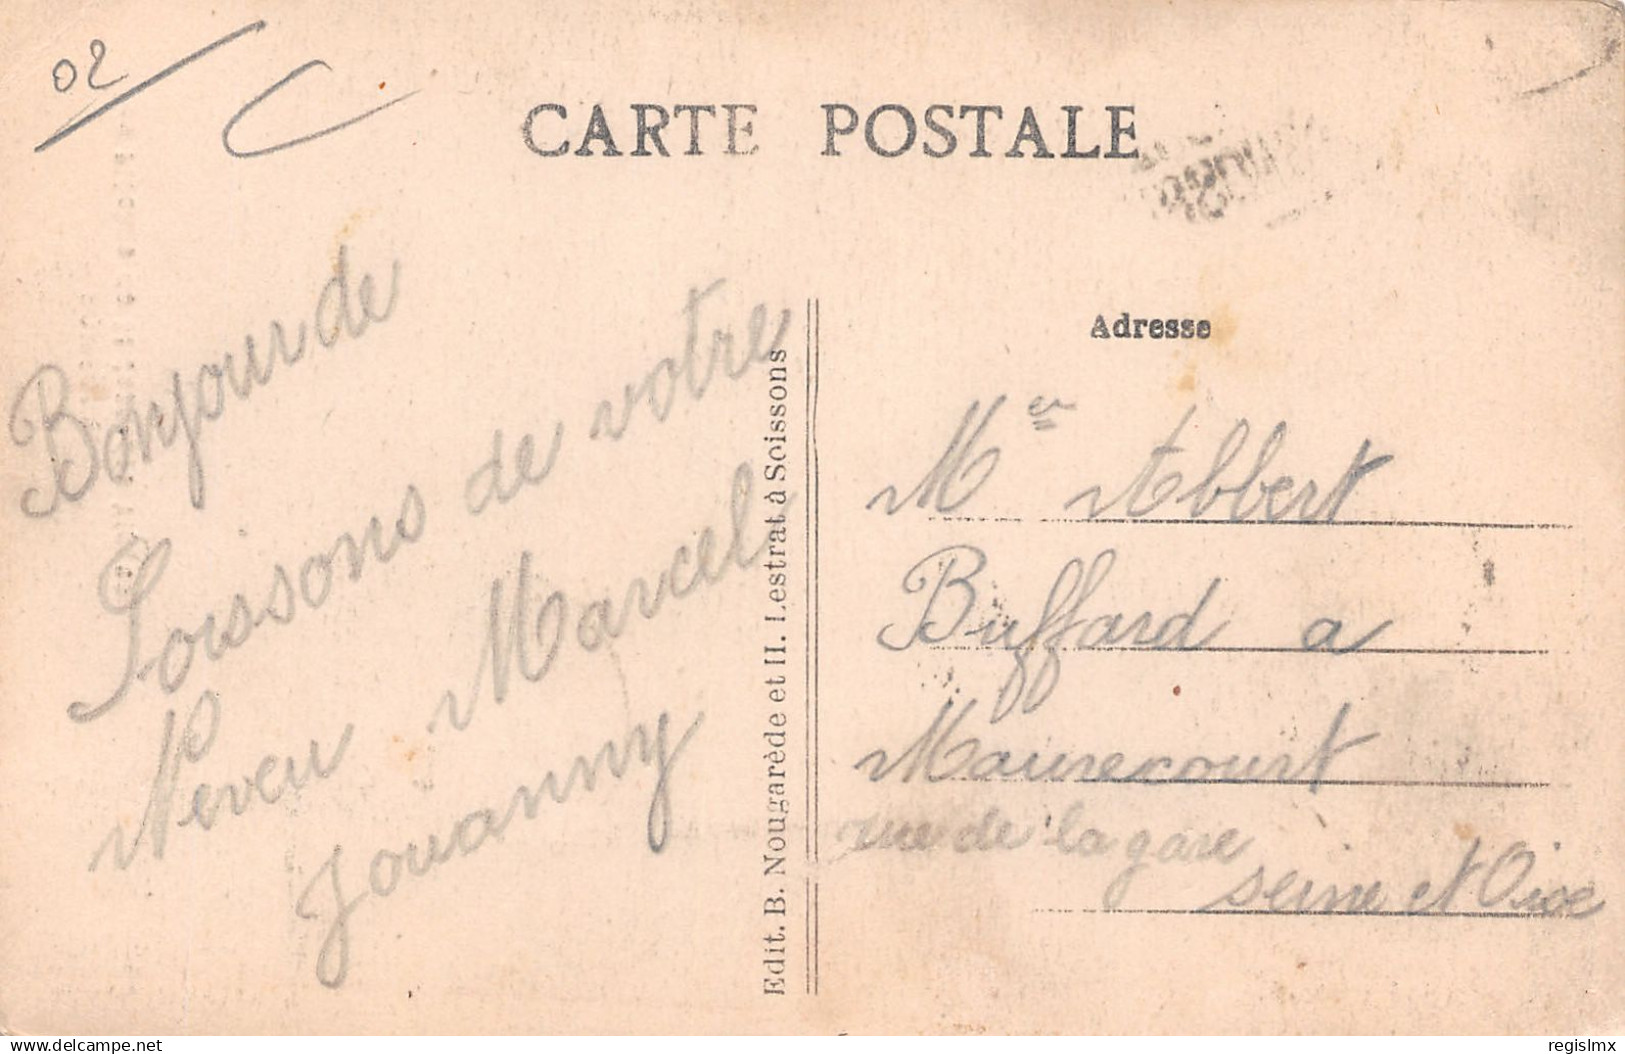 02
CARTE POSTALE
Bonjour de
Soissons de votre
Neveu Marcel
Jouanny
Edit. B. Nougarède et H. Lestrat à Soissons
Adresse
Mer Abbert
Buffard a
Maurecourt
rue de la gare
seine et Oise
www.delcampe.net
regislmx